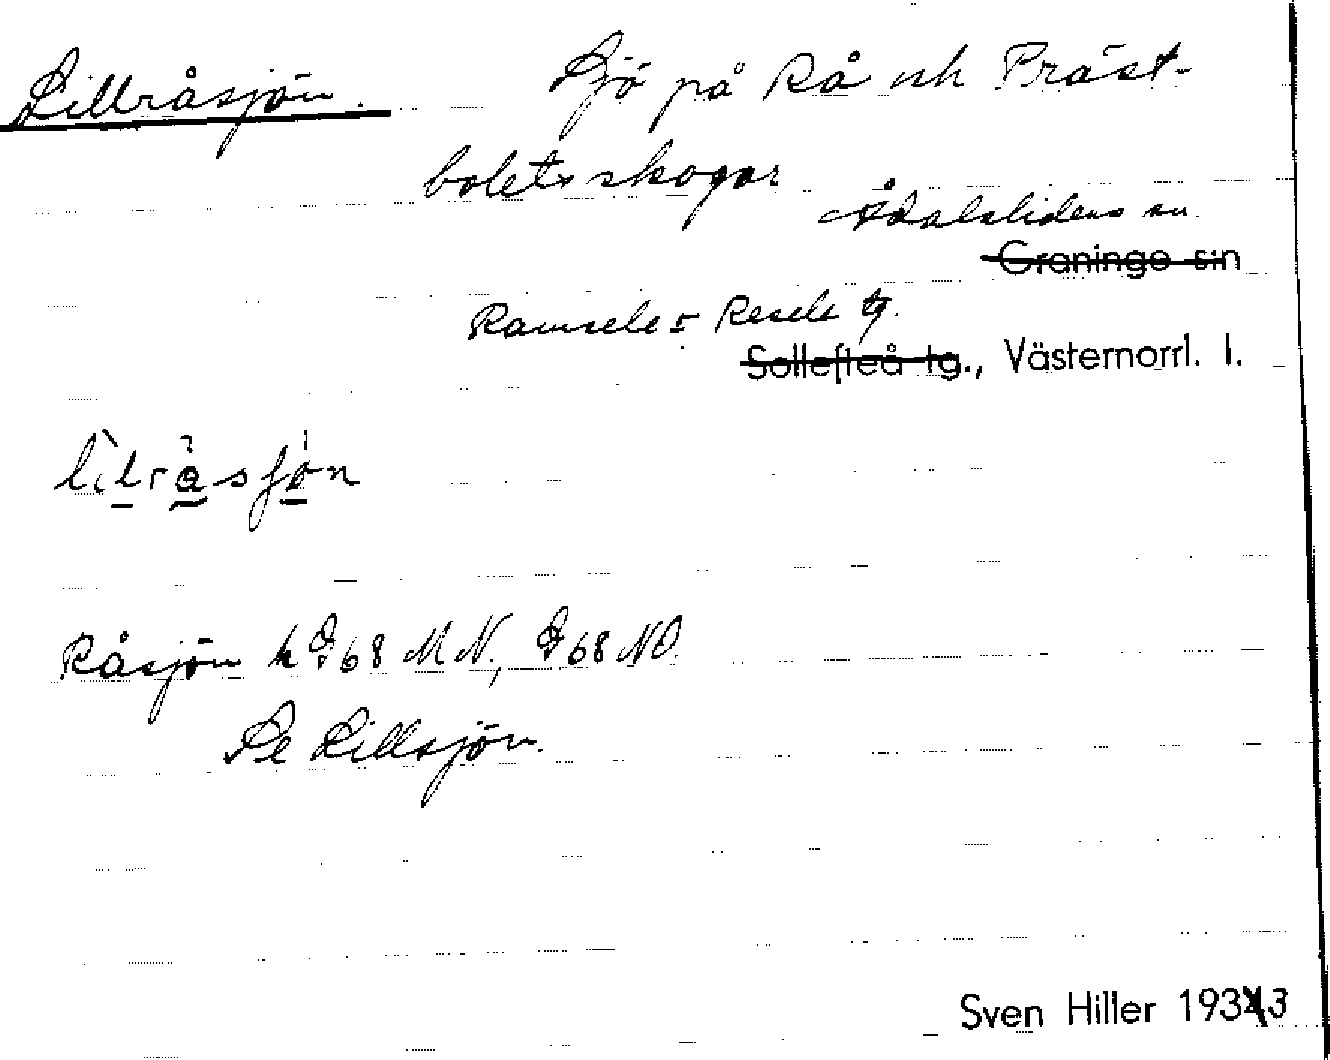 Lillråsjön. Sjö på Rå och Präst-
bolets skogar
Ådalslidens sn.
Graninge sn
Ramsele o Resele tg.
Sollefteå tg., Västernorrl. l.
lìlråsjön
Råsjön k 68 MN, 68 NO.
Se Lillsjön.
Sven Hiller 193 3